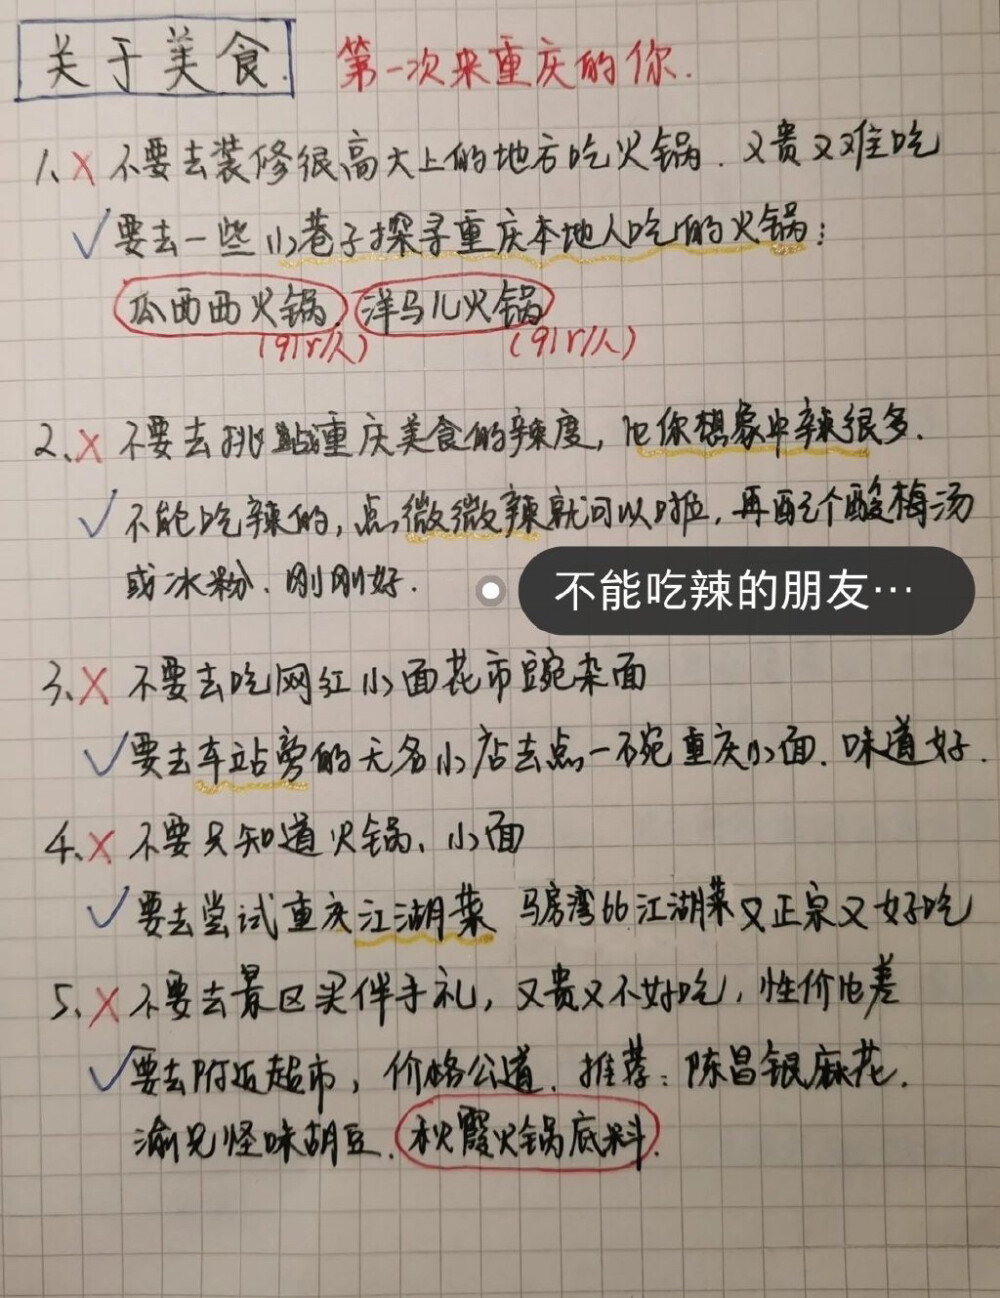 关于美食. 第一次来重庆的你.
1、× 不要去装修很高大上的地方吃火锅. 又贵又难吃
✓ 要去一些小巷子探寻重庆本地人吃的火锅:
瓜西西火锅、洋马儿火锅
(91r/人) (91r/人)
2、× 不要去挑战重庆美食的辣度, 比你想象中辣很多.
✓ 不能吃辣的, 点微微辣就可以啦, 再配个酸梅汤
或冰粉、刚刚好.
不能吃辣的朋友…
3、× 不要去吃网红小面花市豌杂面
✓ 要去车站旁的无名小店去点一碗重庆小面. 味道好.
4、× 不要只知道火锅、小面
✓ 要去尝试重庆江湖菜 马房湾66江湖菜又正宗又好吃
5、× 不要去景区买伴手礼, 又贵又不好吃, 性价比差
✓ 要去附近超市, 价格公道. 推荐: 陈昌银麻花.
渝兄怪味胡豆. 秋霞火锅底料.